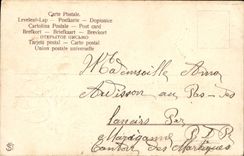 Carte Postale.
Levelező-Lap - Postkarte - Dopisnice
Cartolina Postale - Post card
Brefkort - Briefkaart - Brevkort
ОТКРЫТОЕ ПИСЬМО
Tarjeta postal - Carte postal
Union postale universelle
Mademoiselle Anna
Audisson au Pas-des-
lanciers Par
Marignanne B D R
Canton des Martigues